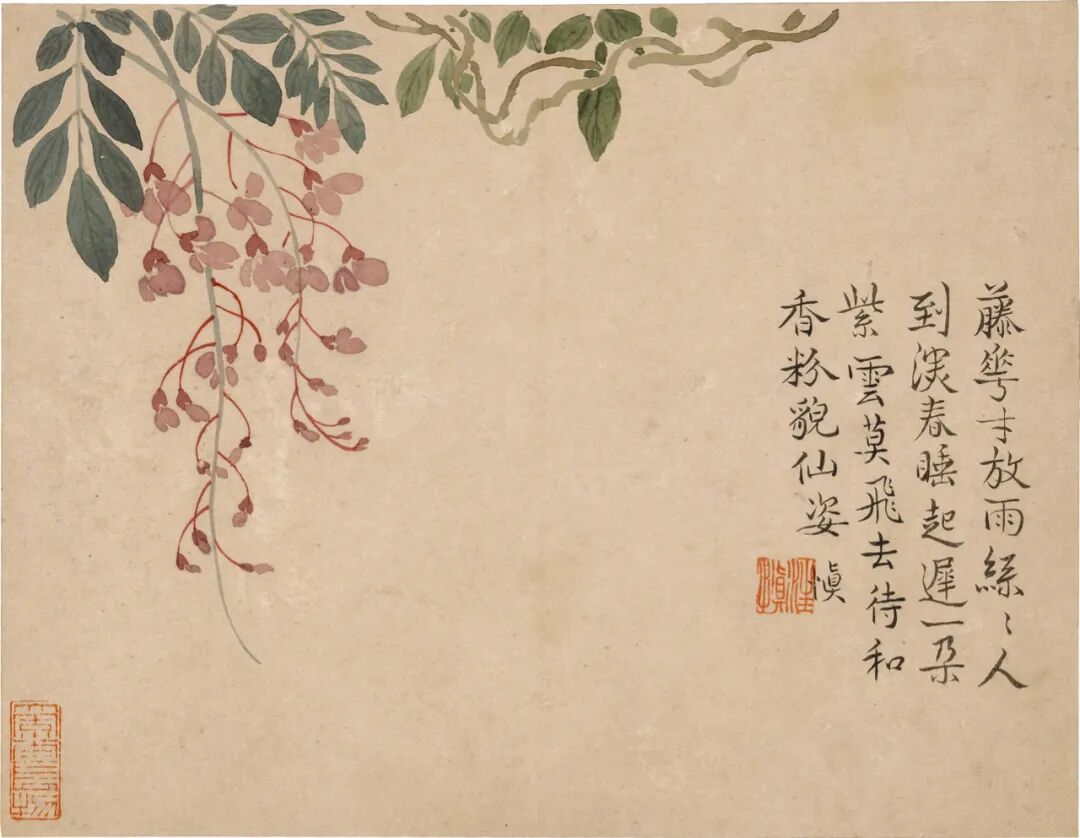 藤華才放雨絲〻人
到深春睡起遲一朵
紫雲莫飛去待和
香粉貌仙姿 慎